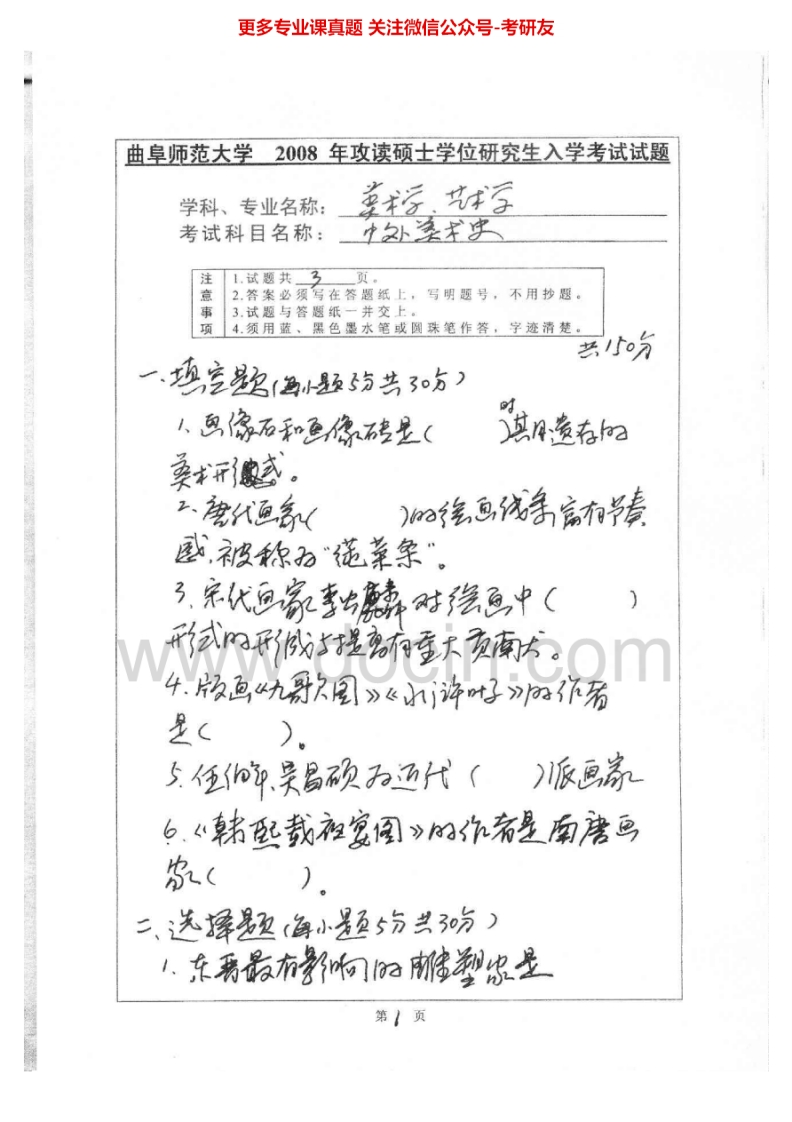 更多专业课真题 关注微信公众号-考研友
曲阜师范大学 2008 年攻读硕士学位研究生入学考试试题
学科、专业名称: 美术学、艺术学
考试科目名称: 中外美术史
注意事项
1.试题共 3 页。
2.答案必须写在答题纸上,写明题号,不用抄题。
3.试题与答题纸一并交上。
4.须用蓝、黑色墨水笔或圆珠笔作答,字迹清楚。
共150分
一、填空题(每小题5分共30分)
1、画像石和画像砖是( )时期遗存的
美术形式。
2、唐代画家( )的绘画线条富有节奏
感,被称为“莼菜条”。
3、宋代画家李公麟对绘画中( )
形式的形成与提高有重大贡献。
www.docin.com
4、版画《九歌图》《水浒叶子》的作者
是( )。
5、任伯年、吴昌硕为近代( )派画家
6、《韩熙载夜宴图》的作者是南唐画
家( )。
二、选择题(每小题5分共30分)
1、东晋最有影响的雕塑家是
第 1 页